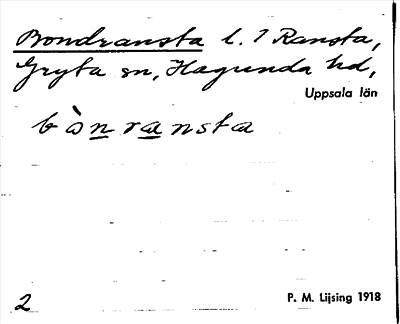 Bondransta l. 1 Ransta,
Gryta sn, Hagunda hd,
Uppsala län
bònransta
2
P. M. Lijsing 1918